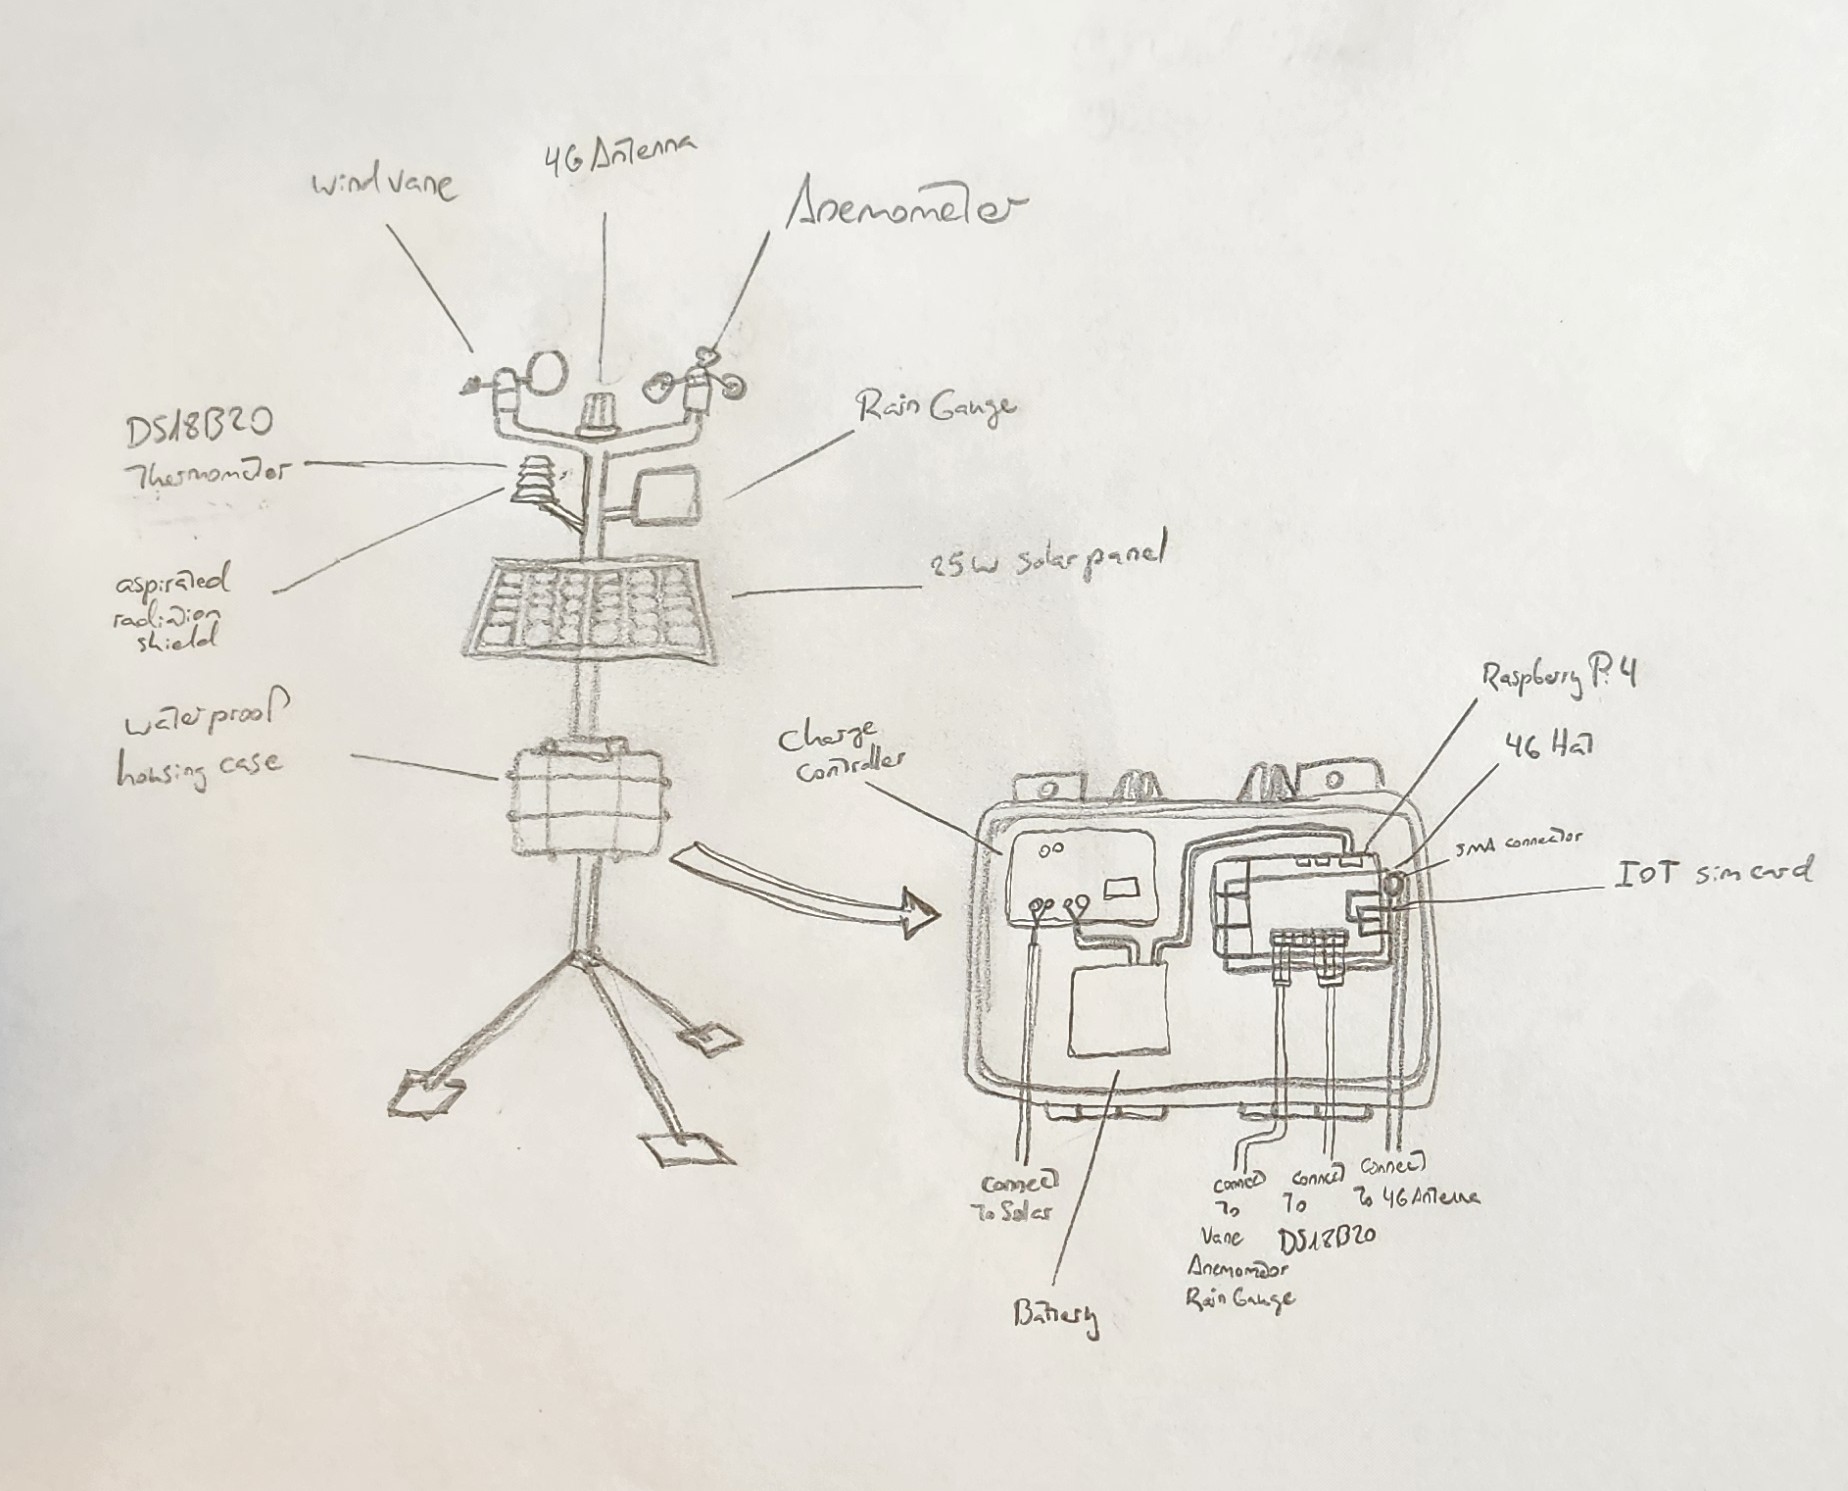 wind vane
4G Antenna
Anemometer
DS18B20
Thermometer
Rain Gauge
aspirated
radiation
shield
25W solar panel
waterproof
housing case
Charge
controller
Raspberry Pi 4
4G Hat
SMA connector
IOT sim card
connect
To Solar
connect
To
Vane
Anemometer
Rain Gauge
connect
To
DS18B20
connect
To 4G Antenna
Battery